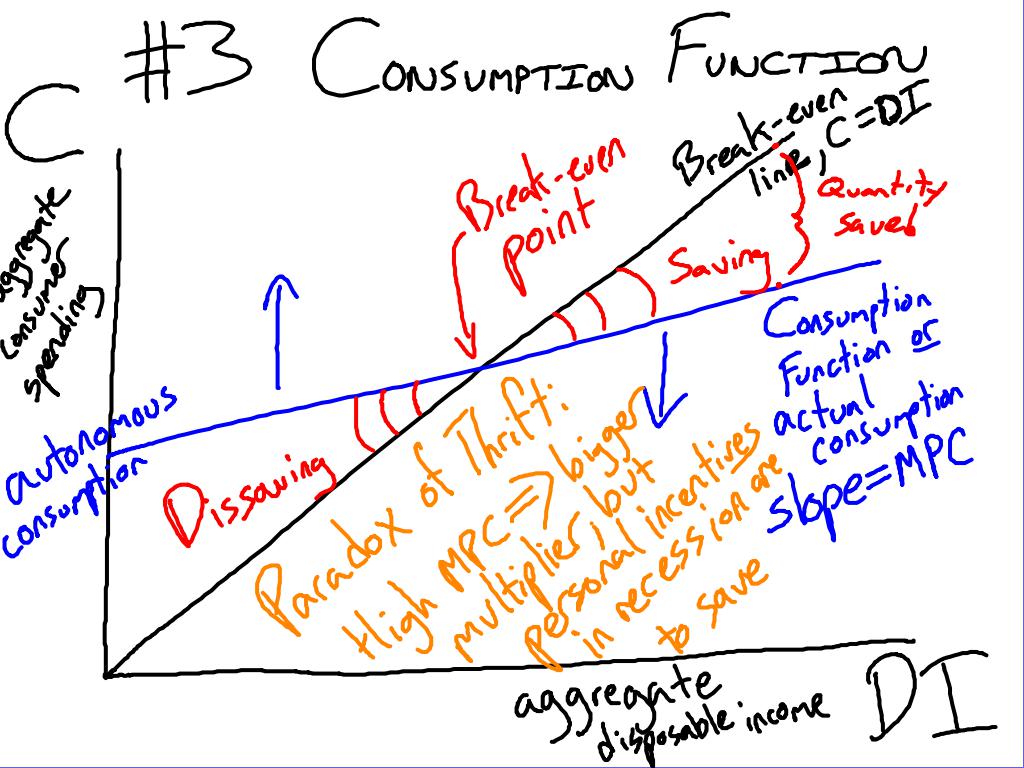 #3 CONSUMPTION FUNCTION
C
aggregate
consumer
spending
Break-even
line, C=DI
Break-even
point
Quantity
saved
Saving
autonomous
consumption
Dissaving
Consumption
Function or
actual
consumption
slope=MPC
Paradox of Thrift:
High MPC ⇒ bigger
multiplier, but
personal incentives
in recession are
to save
aggregate
disposable income
DI